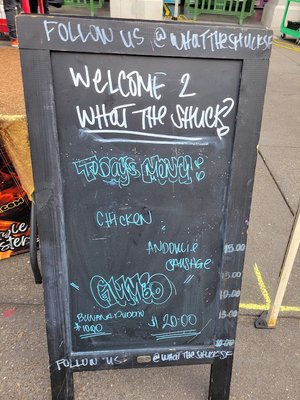 FOLLOW US @WHATTHESHUCKSF
WELCOME 2
WHAT THE SHUCK?
Today's Menu:
CHICKEN
ANDOULIE
SAUSAGE
GUMBO
BUNANA PUDDIN
$10.00
$20.00
FOLLOW US @WHATTHESHUCKSF